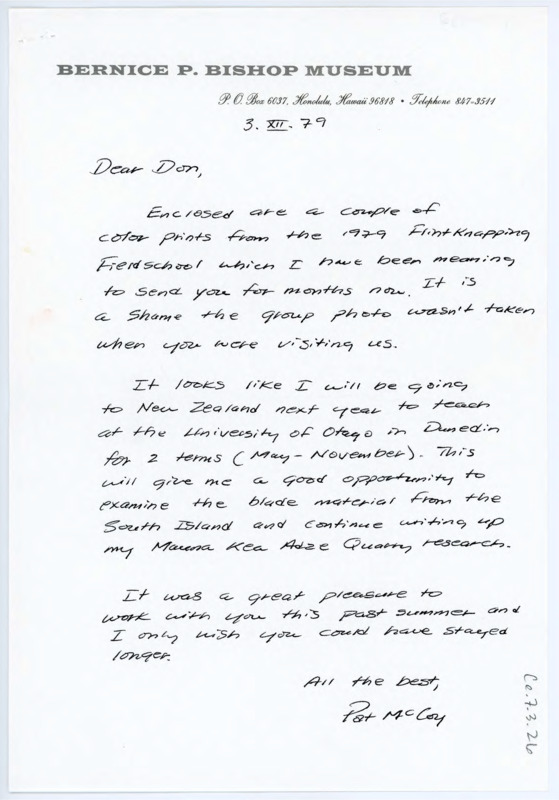 BERNICE P. BISHOP MUSEUM
P. O. Box 6037, Honolulu, Hawaii 96818 • Telephone 847-3511
3. XII. 79
Dear Don,
Enclosed are a couple of
color prints from the 1979 Flintknapping
Fieldschool which I have been meaning
to send you for months now. It is
a shame the group photo wasn't taken
when you were visiting us.
It looks like I will be going
to New Zealand next year to teach
at the University of Otago in Dunedin
for 2 terms (May - November). This
will give me a good opportunity to
examine the blade material from the
South Island and continue writing up
my Mauna Kea Adze Quarry research.
It was a great pleasure to
work with you this past summer and
I only wish you could have stayed
longer.
All the best,
Pat McCoy
Ce.7.3.26